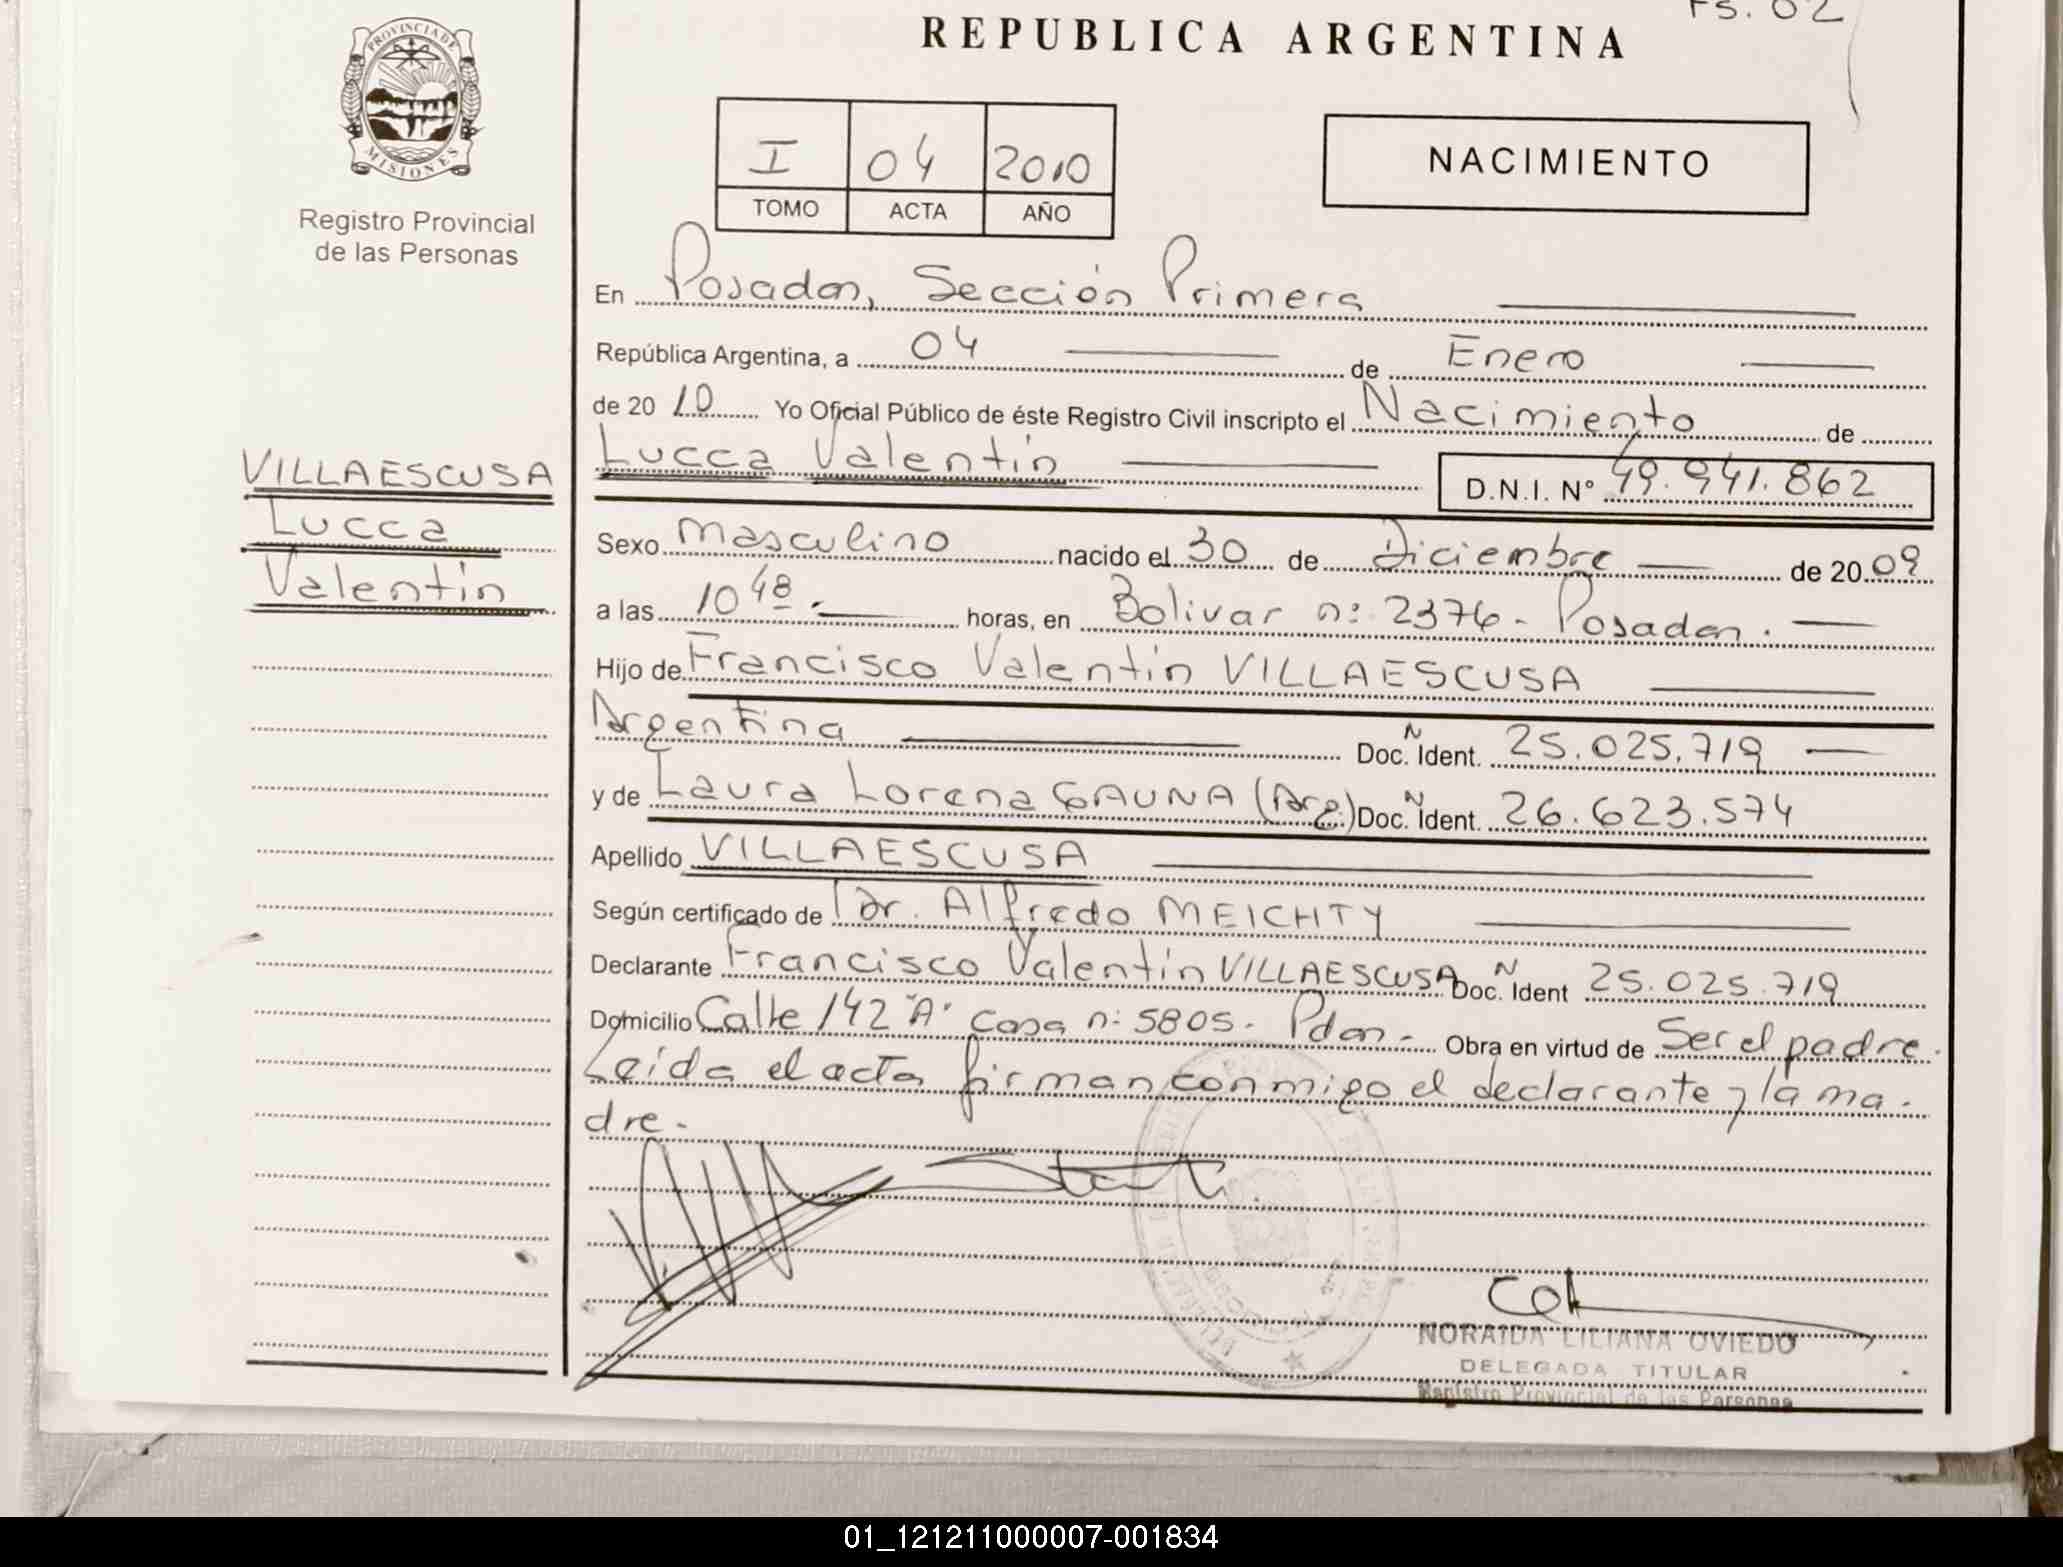 Fs. 02
REPUBLICA ARGENTINA
PROVINCIA DE
MISIONES
Registro Provincial
de las Personas
I 04 2010
TOMO ACTA AÑO
NACIMIENTO
En Posadas, Sección Primera
República Argentina, a 04 de Enero
de 2010 Yo Oficial Público de éste Registro Civil inscripto el Nacimiento de
Lucca Valentín D.N.I. Nº 49.941.862
VILLAESCUSA
Lucca
Valentín
Sexo Masculino nacido el 30 de Diciembre de 2009
a las 10 48 horas, en Bolivar nº 2376 - Posadas.
Hijo de Francisco Valentín VILLAESCUSA
Argentina Doc. N Ident. 25.025.719
y de Laura Lorena GAUNA (Arg.) Doc. N Ident. 26.623.574
Apellido VILLAESCUSA
Según certificado de Dr. Alfredo MEICHTY
Declarante Francisco Valentín VILLAESCUSA Doc. N Ident 25.025.719
Domicilio Calle 142 "A" Casa nº 5805. Pdas - Obra en virtud de Ser el padre.
Leída el acta firman conmigo el declarante y la ma-
dre.
NORAIDA LILIANA OVIEDO
DELEGADA TITULAR
Registro Provincial de las Personas
01_121211000007-001834